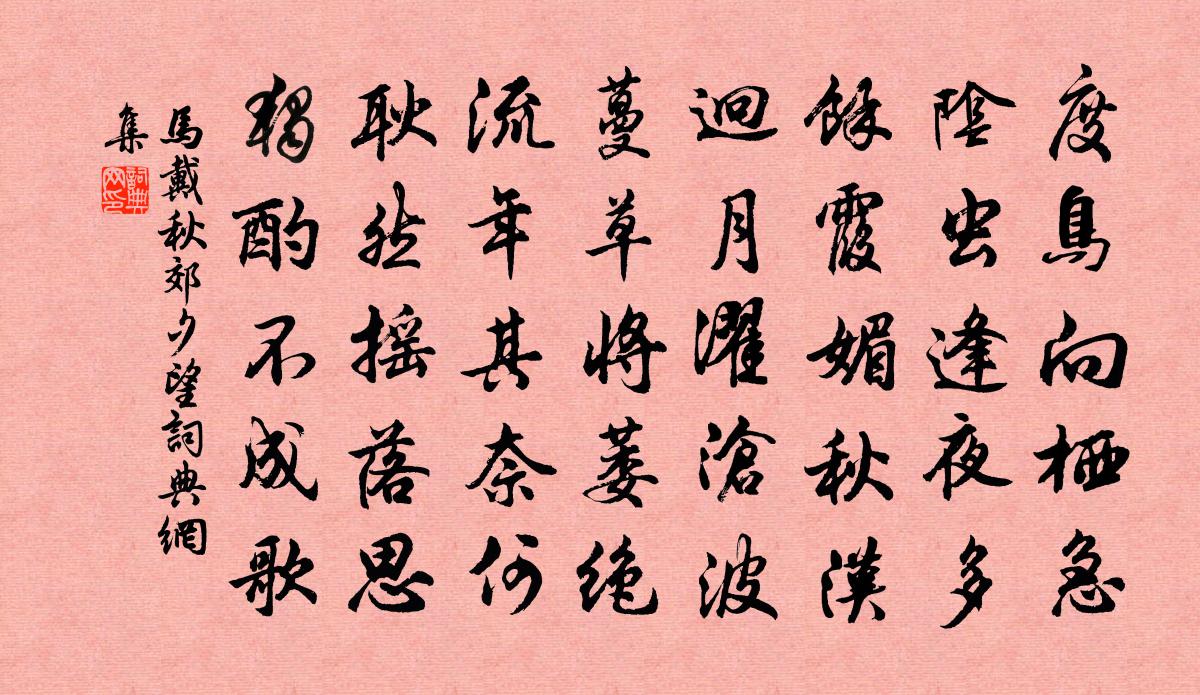 度鳥向栖急
陰虫逢夜多
餘霞媚秋漢
迥月濯滄波
蔓草將萎絶
流年其奈何
耿然摇落思
獨酌不成歌
馬戴秋郊夕望詞典網
集
詞典
网印